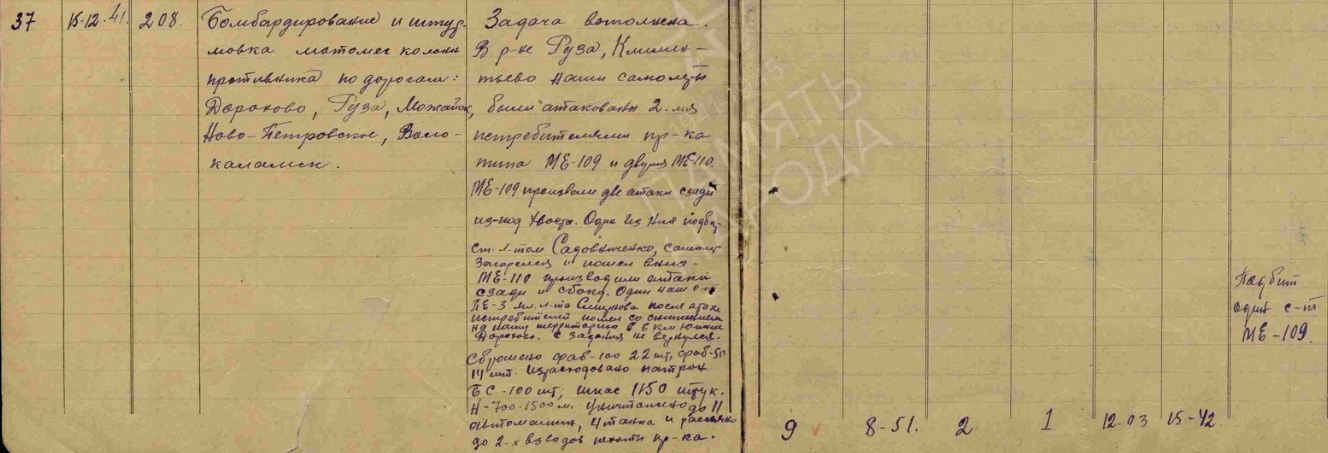 37
15.12.41.
208.
Бомбардирование и штур-
мовка мотомех колонн
противника по дорогам:
Дорохово, Руза, Можайск,
Ново-Петровское, Воло-
каламск.
Задача выполнена.
В р-не Руза, Клемен-
тьево наши самолеты
были атакованы 2-мя
истребителями пр-ка
типа МЕ-109 и двумя МЕ-110.
МЕ-109 произвели две атаки сзади
из-под хвоста. Один из них подбит
ст. л-том самолет
загорелся и пошел вниз.
МЕ-110 производили атаки
сзади и сбоку. Один наш с-т
ПЕ-3 мл. л-та Смирнова после атаки
истребителей пошел со снижением
на нашу территорию в 6 км южнее
Дорохово. С задания не вернулся.
Сброшено фаб-100 22 шт, фаб-50
14 шт. Израсходовано патрон
БС-100 шт, шкас 1150 штук.
Н-700-1500 м. Уничтожено до 11
автомашин, 4 танка и рассеяно
до 2-х взводов пехоты пр-ка.
9
8-51.
2
1
12.03
15-42
Подбит
один с-т
МЕ-109.
1941-1945
ПАМЯТЬ
НАРОДА